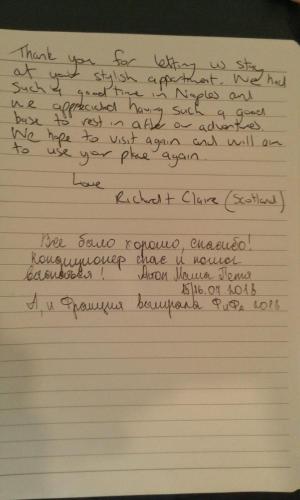 Thank you for letting us stay
at your stylish appartment. We had
such a good time in Naples and
we appreciated having such a good
base to rest in after our adventures.
We hope to visit again and will
to use your place again.
Love
Richard + Claire (Scotland)
Все было хорошо, спасибо!
Кондиционер спас и помог
Маша Петя
15/16.07.2018
А, и Франция выиграла ФиФа 2018